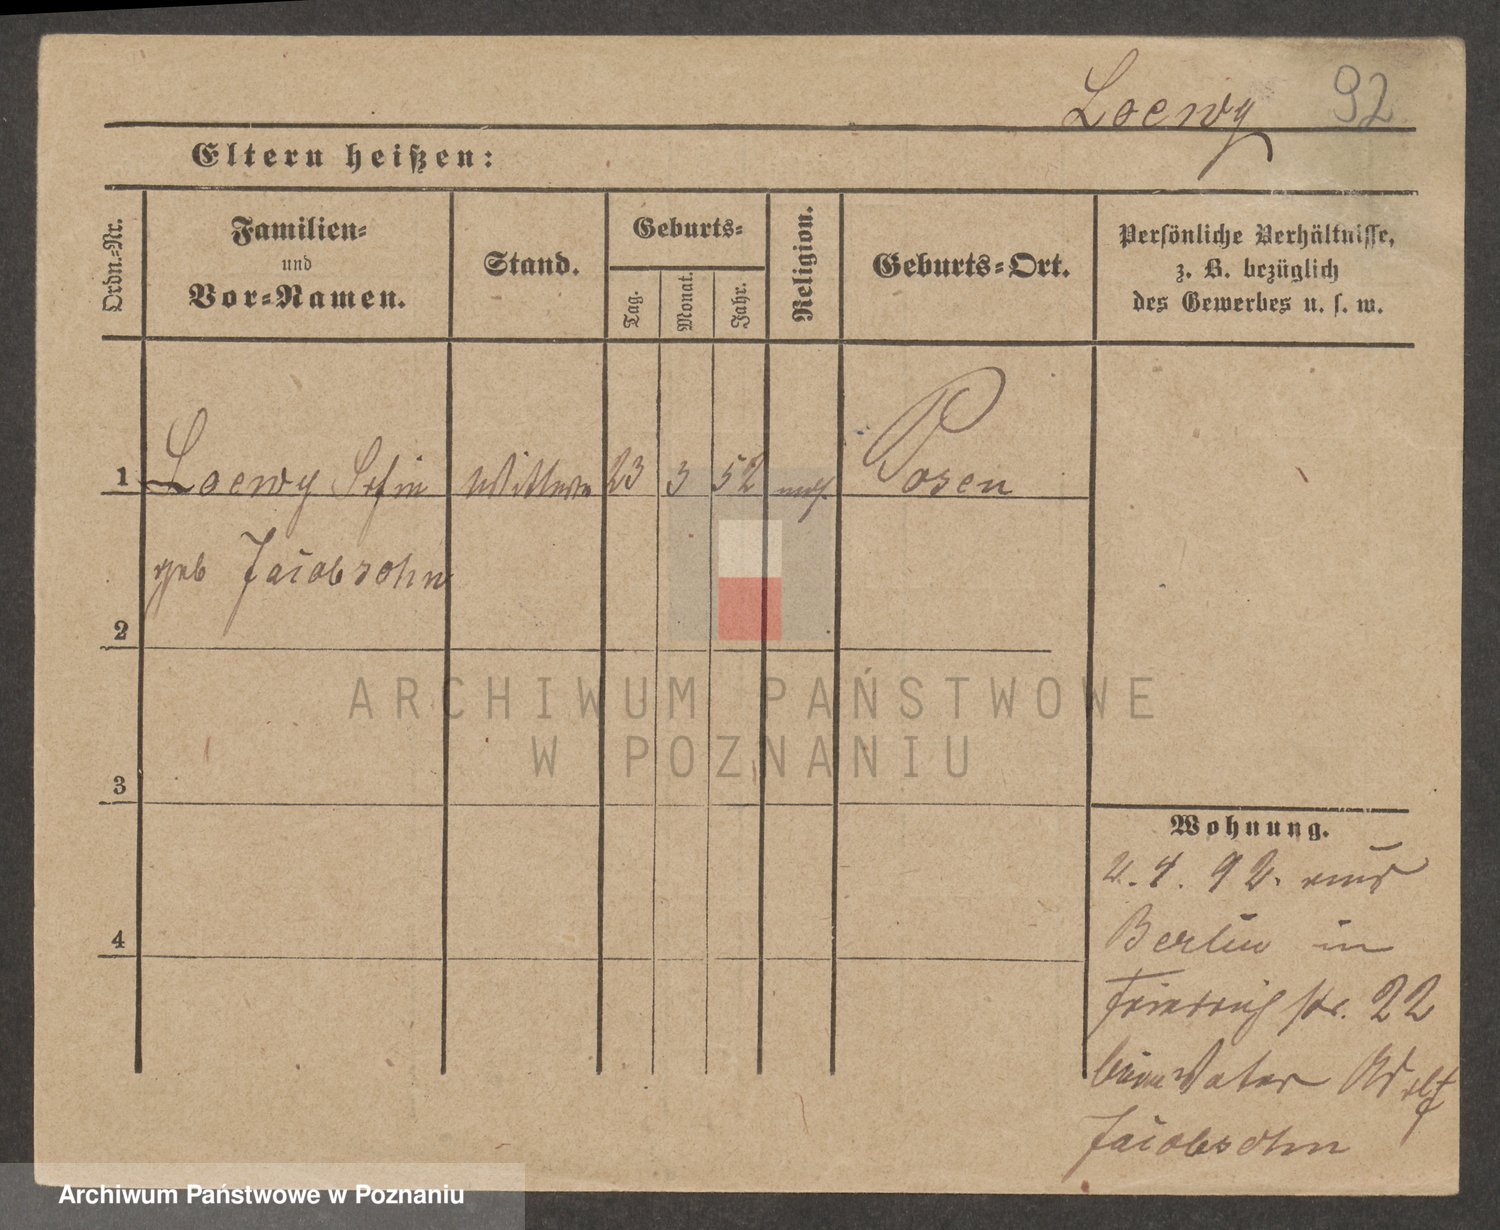 Loewy 92
Eltern heißen:
Ordn.-Nr.
Familien-
und
Vor-Namen.
Stand.
Geburts-
Tag.
Monat.
Jahr.
Religion.
Geburts-Ort.
Persönliche Verhältnisse,
z. B. bezüglich
des Gewerbes u. s. w.
1 Loewy Wittwe 23 3 52 mos. Posen
geb Jacobsohn
2
3
4
ARCHIWUM PAŃSTWOWE
W POZNANIU
Wohnung.
92. aus
Berlin in
Friedrichstr. 22
beim Vater Adolf
Jacobsohn
Archiwum Państwowe w Poznaniu